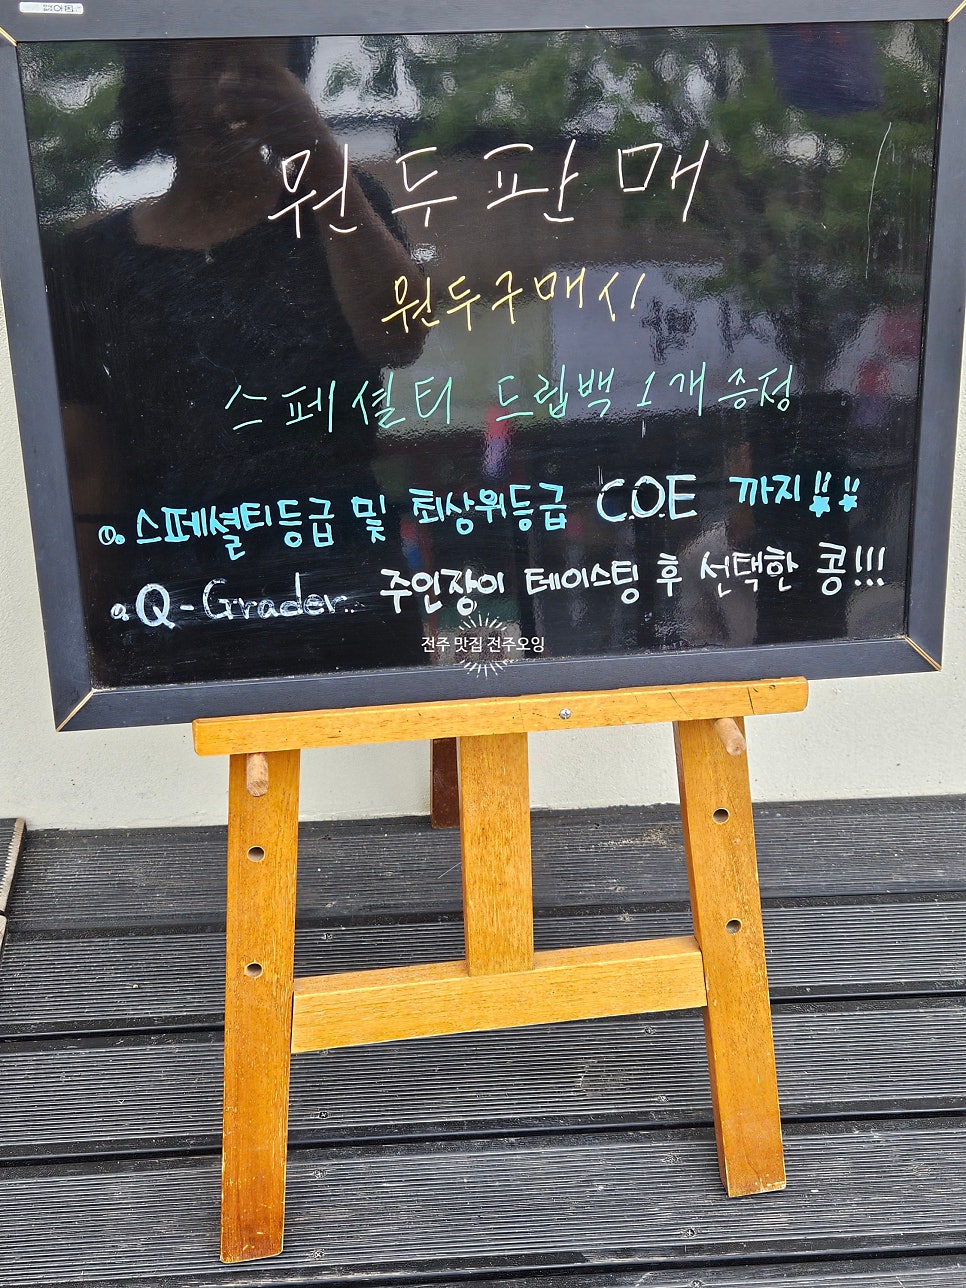 원두판매
원두구매시
스페셜티 드립백 1개 증정
스페셜티등급 및 최상위등급 C.O.E 까지!!
Q-Grader.. 주인장이 테이스팅 후 선택한 콩!!!
전주 맛집 전주오잉